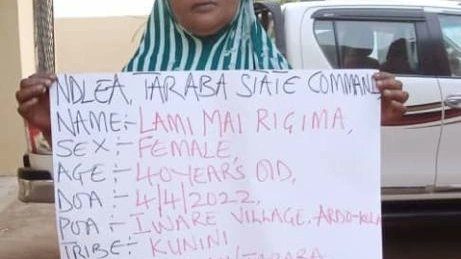 NDLEA, TARABA STATE COMMAND,
NAME:- LAMI MAI RIGIMA,
SEX:- FEMALE,
AGE:- 40YEAR'S OlD,
DOA:- 4/4/2022,
POA:- IWARE VILLAGE, ARDO-KOLA
TRIBE:- KUNINI